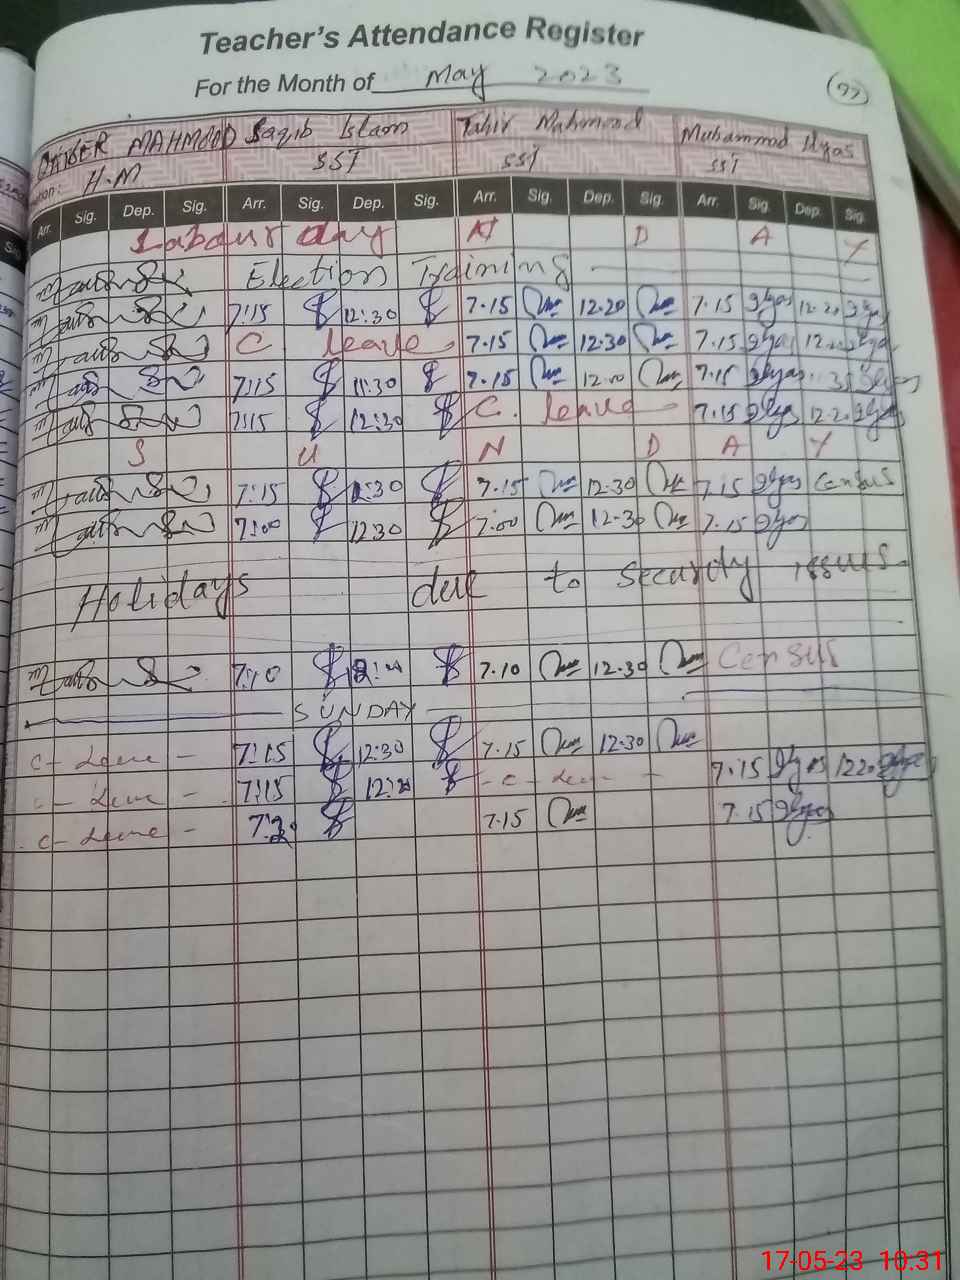 Teacher's Attendance Register
For the Month of May 2023
(77)
MAHMOOD Saqib Islam Tahir Mahmood Muhammad Ilyas
H.M SST SST SST
Arr. Sig. Dep. Sig. Arr. Sig. Dep. Sig. Arr. Sig. Dep. Sig. Arr. Sig. Dep. Sig.
Labour day N D A Y
Election Training
7:15 12:30 7.15 12.20 7.15 Ilyas 12.20 Ilyas
C leave 7.15 12.30 7.15 Ilyas Ilyas
7:15 11:30 7.15 12.00 7.15 Ilyas Ilyas
7:15 12:30 C. leave 7.15 Ilyas 12.20 Ilyas
S U N D A Y
7:15 7.15 12.30 7.15 Ilyas Census
7:00 12:30 7:00 12.30 7.15 Ilyas
Holidays due to security issues
7:10 7.10 12.30 Census
SUNDAY
C- Leave - 7:15 12:30 7.15 12.30
C- Leave - 7:15 - C - Leave - 7.15 Ilyas 12.20 Ilyas
C- Leave - 7.15 7.15 Ilyas
17-05-23 10.31